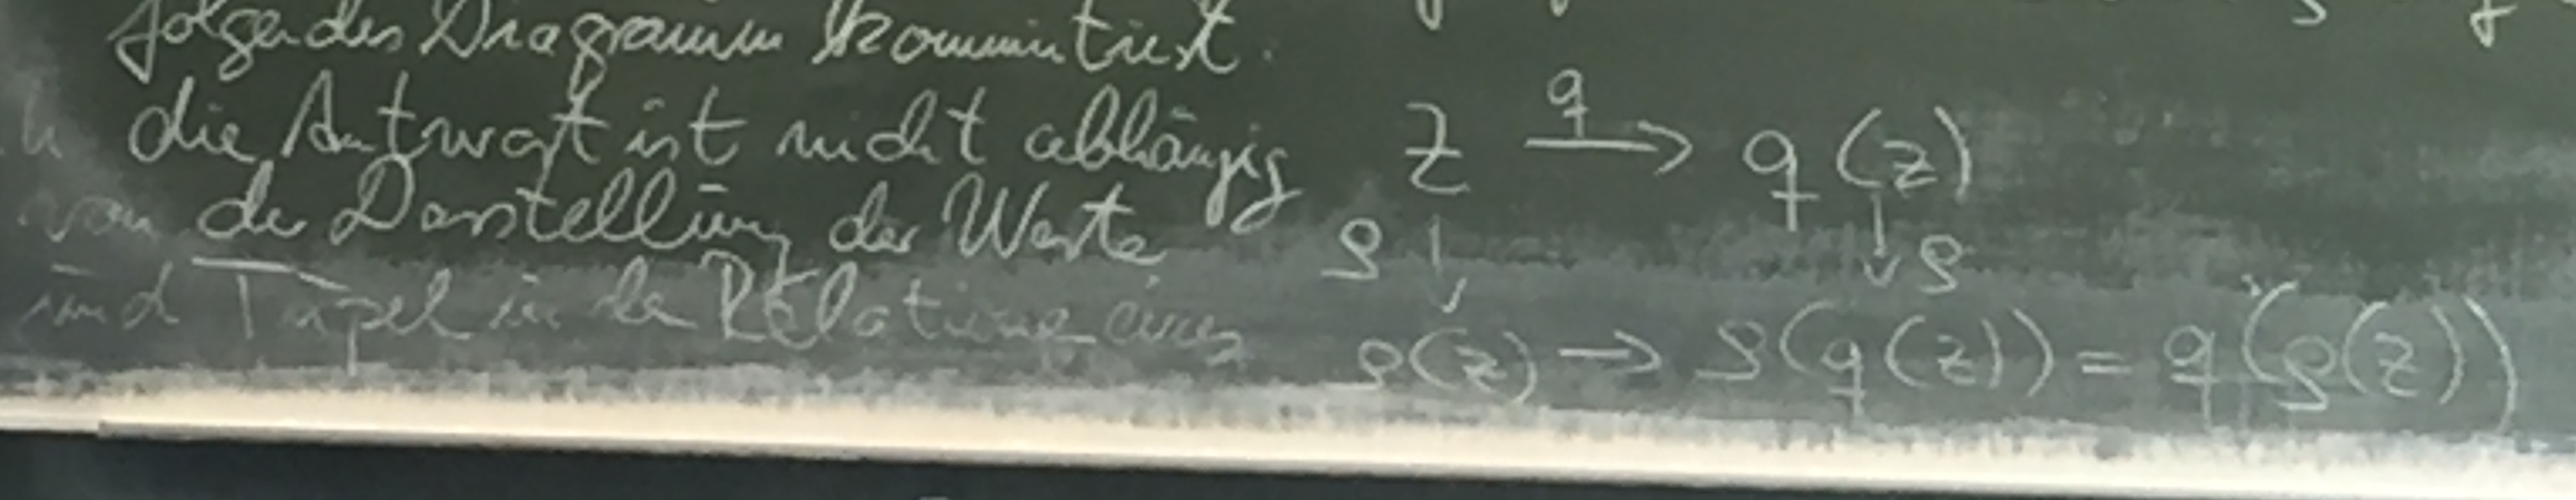 folgendes Diagramm kommutiert.
die Antwort ist nicht abhängig
von der Darstellung der Werte
und Tupel in der Relation eines
z q→ q(z)
ρ ↓ ↓ ρ
ρ(z) → ρ(q(z)) = q(ρ(z))